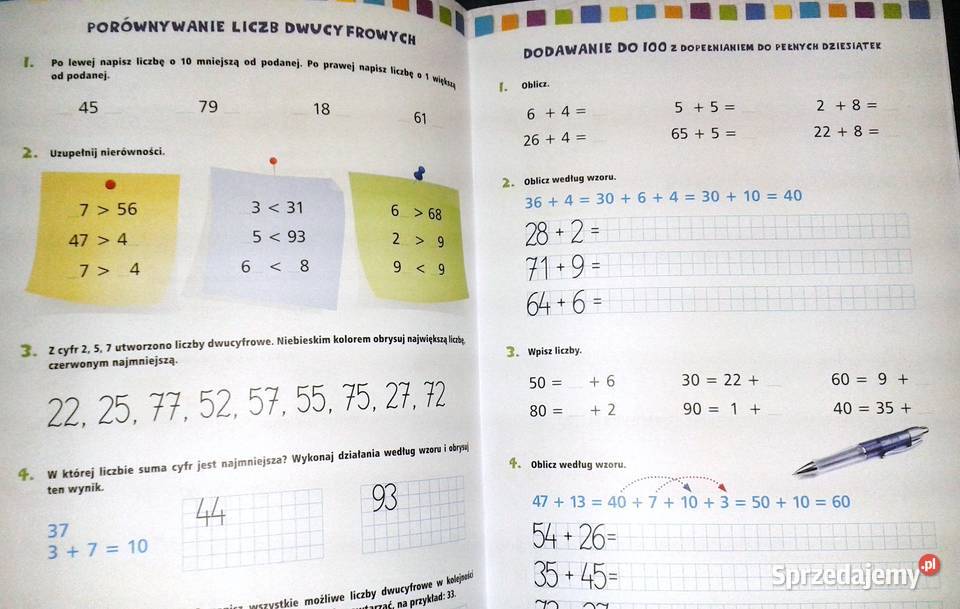 PORÓWNYWANIE LICZB DWUCYFROWYCH
1. Po lewej napisz liczbę o 10 mniejszą od podanej. Po prawej napisz liczbę o 1 większą
od podanej.
45 79 18 61
2. Uzupełnij nierówności.
_7 > 56
47 > 4_
_7 > _4
_3 < 31
_5 < 93
6_ < _8
6_ > 68
2_ > _9
9_ < _9
3. Z cyfr 2, 5, 7 utworzono liczby dwucyfrowe. Niebieskim kolorem obrysuj największą liczbę,
czerwonym najmniejszą.
22, 25, 77, 52, 57, 55, 75, 27, 72
4. W której liczbie suma cyfr jest najmniejsza? Wykonaj działania według wzoru i obrysuj
ten wynik.
37 44 93
3 + 7 = 10
wszystkie możliwe liczby dwucyfrowe w kolejności
na przykład: 33.
DODAWANIE DO 100 Z DOPEŁNIANIEM DO PEŁNYCH DZIESIĄTEK
1. Oblicz.
6 + 4 = 5 + 5 = 2 + 8 =
26 + 4 = 65 + 5 = 22 + 8 =
2. Oblicz według wzoru.
36 + 4 = 30 + 6 + 4 = 30 + 10 = 40
28 + 2 =
71 + 9 =
64 + 6 =
3. Wpisz liczby.
50 = _ + 6 30 = 22 + _ 60 = 9 + _
80 = _ + 2 90 = 1 + _ 40 = 35 + _
4. Oblicz według wzoru.
47 + 13 = 40 + 7 + 10 + 3 = 50 + 10 = 60
54 + 26 =
35 + 45 =
Sprzedajemy.pl